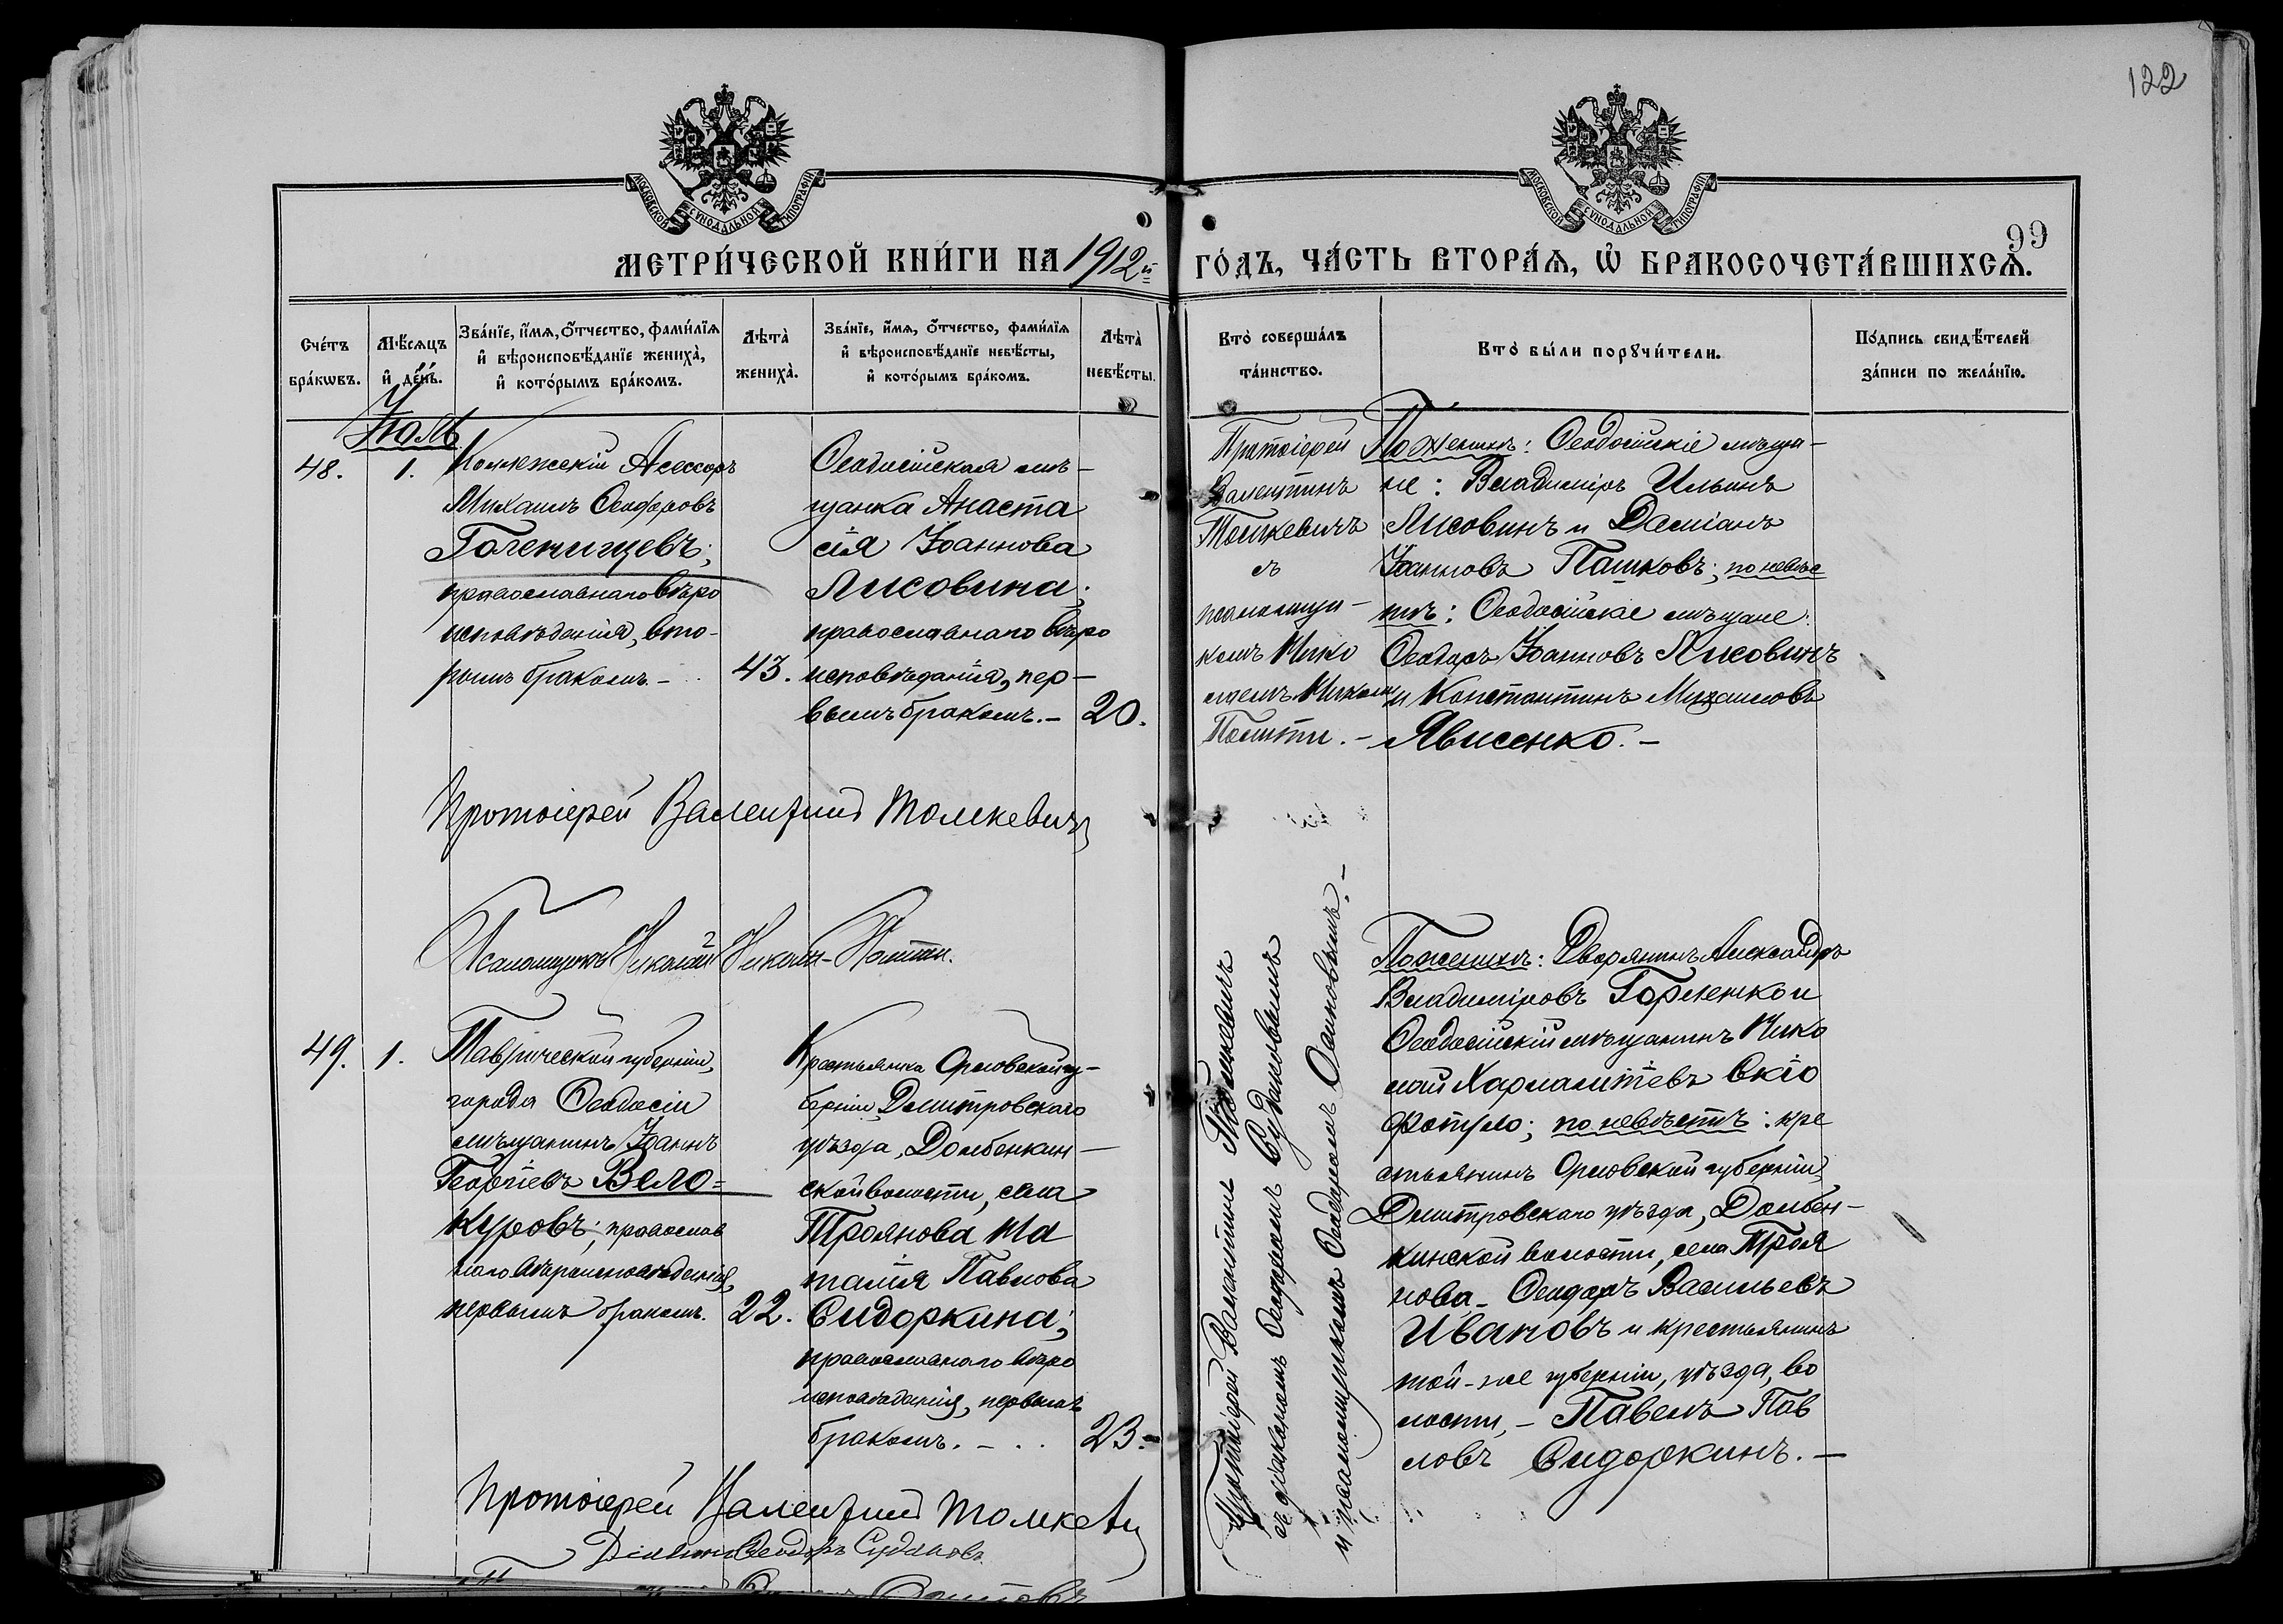 122
МОСКОВСКОЙ СУНОДАЛЬНОЙ ТИПОГРАФІИ
МОСКОВСКОЙ СУНОДАЛЬНОЙ ТИПОГРАФІИ
99
МЕТРИ́ЧЕСКОЙ КНИ́ГИ НА 1912й ГО́ДЪ, ЧА́СТЬ ВТОРА́Ѧ, Ѡ БРАКОСОЧЕТА́ВШИХСѦ.
Сче́тъ бра́кѡвъ.
Мѣ́сѧцъ и҆ де́нь.
Зва́нїе, и҆́мѧ, ѻ҆́тчество, фами́лїѧ и҆ вѣроисповѣ́данїе жениха̀, и҆ кото́рымъ бра́комъ.
Лѣта̀ жениха̀.
Зва́нїе, и҆́мѧ, ѻ҆́тчество, фами́лїѧ и҆ вѣроисповѣ́данїе невѣ́сты, и҆ кото́рымъ бра́комъ.
Лѣта̀ невѣ́сты.
Кто̀ соверша́лъ та́инство.
Кто̀ бы́ли порꙋчи́тели.
По́дпись свидѣ́телей за́писи по жела́нїю.
Іюль
48.
1.
Коллежскій Асессоръ
Михаилъ Ѳеодоровъ
Голенищевъ;
православнаго вѣро
исповѣданія, вто-
рымъ бракомъ.-
43.
Ѳеодосійская мѣ-
щанка Анаста
сія Іоаннова
Лисовина;
православнаго вѣро
исповѣданія, пер-
вымъ бракомъ.-
20.
Протоіерей
Валентинъ
Томкевичъ
съ
псаломщи-
комъ Нико
лаемъ Николи
Политти.-
По женихѣ: Ѳеодосійскіе мѣща-
не: Владиміръ Ильинъ
Лисовинъ и Даміанъ
Іоанновъ Пашковъ; по невѣс
тѣ: Ѳеодосійскіе мѣщане:
Ѳеодоръ Іоанновъ Лисовинъ
и Константинъ Михаиловъ
Явисенко.-
Протоіерей Валентинъ Томкевичъ
Псаломщикъ Николай
49.
1.
Таврической губерніи,
города Ѳеодосіи
мѣщанинъ Іоаннъ
Георгіевъ Бело=
куровъ; православ
наго вѣроисповѣданія,
первымъ бракомъ.
22.
Крестьянка Орловской гу-
берніи, Дмитровскаго
уѣзда, Долбенкин-
ской волости, села
Троянова На
талія Павлова
Сидоркина;
православнаго вѣро
исповѣданія, первымъ
бракомъ.-
23.-
Протоіерей Валентинъ Томкевичъ
съ діакономъ Ѳеодоромъ Судаковымъ
и псаломщикомъ Ѳеодоромъ
По женихѣ: Дворянинъ Александръ
Владиміровъ Горленко и
Ѳеодосійскій мѣщанинъ Нико
лай Харлампіевъ Скіо
фотуло; по невѣстѣ: кре
стьянинъ Орловской губерніи,
Дмитровскаго уѣзда, Долбен-
кинской волости, села Троя
нова- Ѳеодоръ Васильевъ
Ивановъ и крестьянинъ
той-же губерніи, уѣзда, во
лости,- Павелъ Пав
ловъ Сидоркинъ.-
Протоіерей Валентинъ Томкевич
Діаконъ Ѳеодоръ Судаковъ